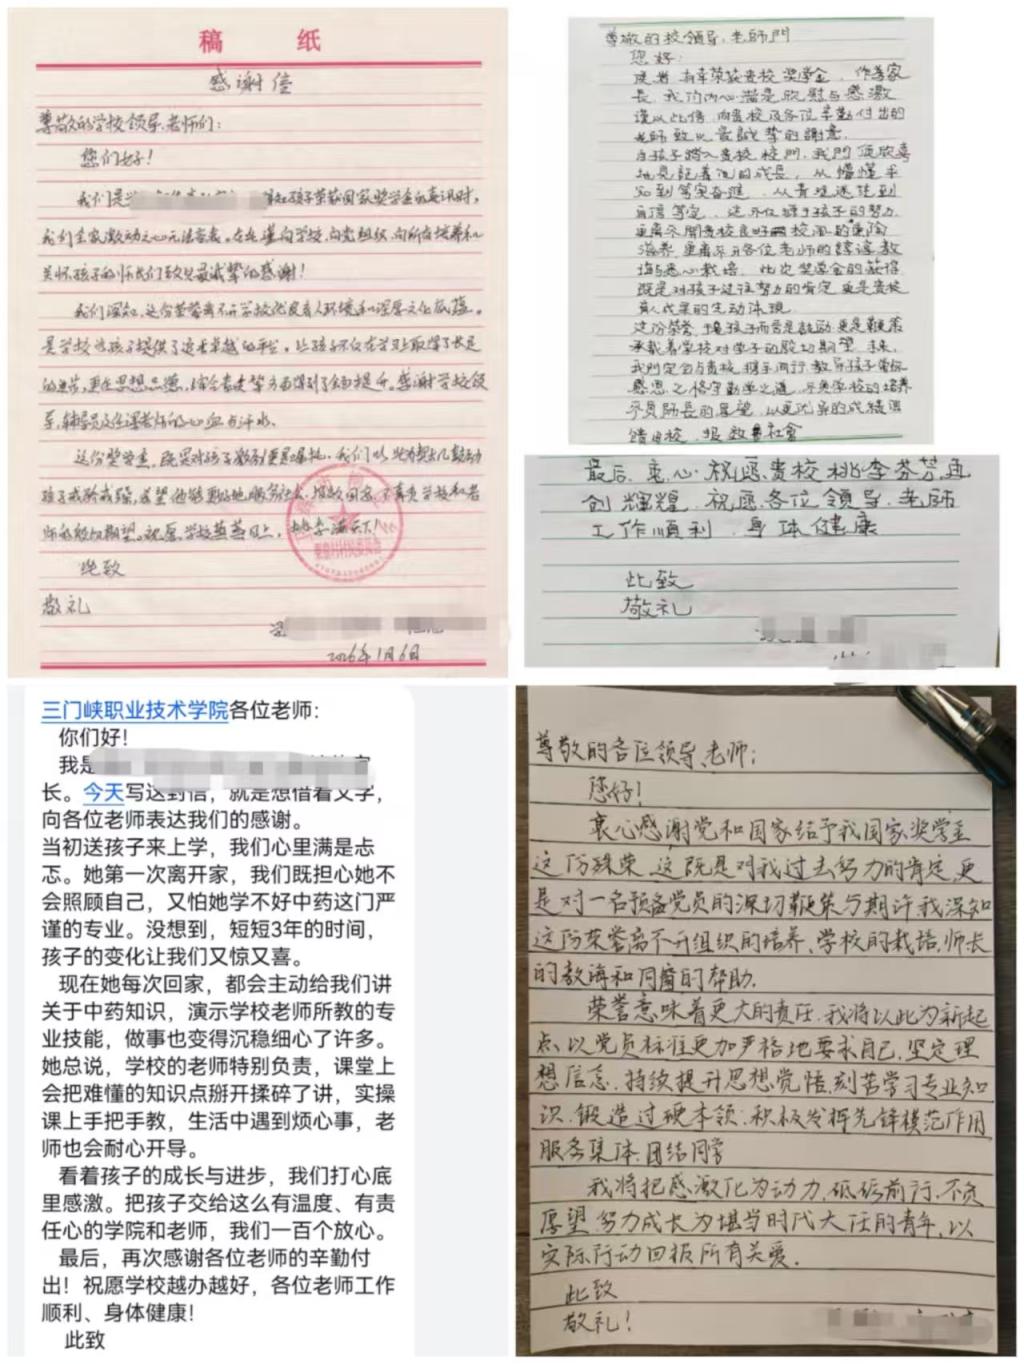 稿 纸
感谢信
尊敬的学校领导、老师们：
您们好！
我们是 孩子荣获国家奖学金的喜讯时，
我们全家激动之心无法言表。在此谨向学校，向党组织，向所有培养和
关怀孩子的师长们致以最诚挚的感谢！
我们深知，这份荣誉离不开学校优良育人环境和深厚文化底蕴。
是学校为孩子提供了追求卓越的平台。让孩子不仅在学习上取得了长足
的进步，更在思想品德，综合素质等方面得到了全面提升。感谢学校领
导，辅导员及任课老师的心血与汗水。
这份奖学金，既是对孩子激励更是鞭策。我们以此为契机鼓励
孩子戒骄戒躁，希望他能更好地服务社会，报效国家，不辜负学校和老
师的殷切期望。祝愿学校蒸蒸日上，桃李满天下！
此致
敬礼
2026年1月6日
尊敬的校领导、老師門
您好：
有幸荣获贵校奖学金，作为家
長，我的内心满是欣慰与感激
谨以此信，向贵校及各位辛勤付出的
老师致以最誠挚的謝意
自孩子踏入贵校校門，我門便欣喜
地見証着他的成長，从懵懂手
知到笃实奋進，从青涩迷茫到
自信笃定，这不仅缘于孩子的努力
更离不開貴校良好校風的熏陶
滋养，更离不开各位老师的諄谆教
诲与悉心栽培，此次奖學金的获得
既是对孩子过往努力的肯定更是贵校
育人成果的生动体現
这份荣誉，于孩子而言是鼓励，更是鞭策
承載着学校对学子的殷切期望，未来，
我們定会与贵校，携手同行，教导孩子常怀
感恩之心恪守勤学之道，不负学校的培养
不负師長的厚望，以更优异的成績回
馈母校，报效社会
最后，衷心祝愿贵校桃李芬芳，再
创辉煌，祝愿各位领导、老師
工作順利，身体健康
此致
敬礼
三门峡职业技术学院各位老师：
你们好！
我是
长。今天写这封信，就是想借着文字，
向各位老师表达我们的感谢。
当初送孩子来上学，我们心里满是忐
忑。她第一次离开家，我们既担心她不
会照顾自己，又怕她学不好中药这门严
谨的专业。没想到，短短3年的时间，
孩子的变化让我们又惊又喜。
现在她每次回家，都会主动给我们讲
关于中药知识，演示学校老师所教的专
业技能，做事也变得沉稳细心了许多。
她总说，学校的老师特别负责，课堂上
会把难懂的知识点掰开揉碎了讲，实操
课上手把手教，生活中遇到烦心事，老
师也会耐心开导。
看着孩子的成长与进步，我们打心底
里感激。把孩子交给这么有温度、有责
任心的学院和老师，我们一百个放心。
最后，再次感谢各位老师的辛勤付
出！祝愿学校越办越好，各位老师工作
顺利、身体健康！
此致
尊敬的各位领导、老师：
您好！
衷心感谢党和国家给予我国家奖学金
这份殊荣，这既是对我过去努力的肯定，更
是对一名预备党员的深切鞭策与期许，我深知
这份荣誉离不开组织的培养、学校的栽培、师长
的教诲和同窗的帮助。
荣誉意味着更大的责任，我将以此为新起
点，以党员标准更加严格地要求自己，坚定理
想信念，持续提升思想觉悟，刻苦学习专业知
识，锻造过硬本领，积极发挥先锋模范作用，
服务集体、团结同学
我将把感激化为动力，砥砺前行，不负
厚望，努力成长为堪当时代大任的青年，以
实际行动回报所有关爱。
此致
敬礼！